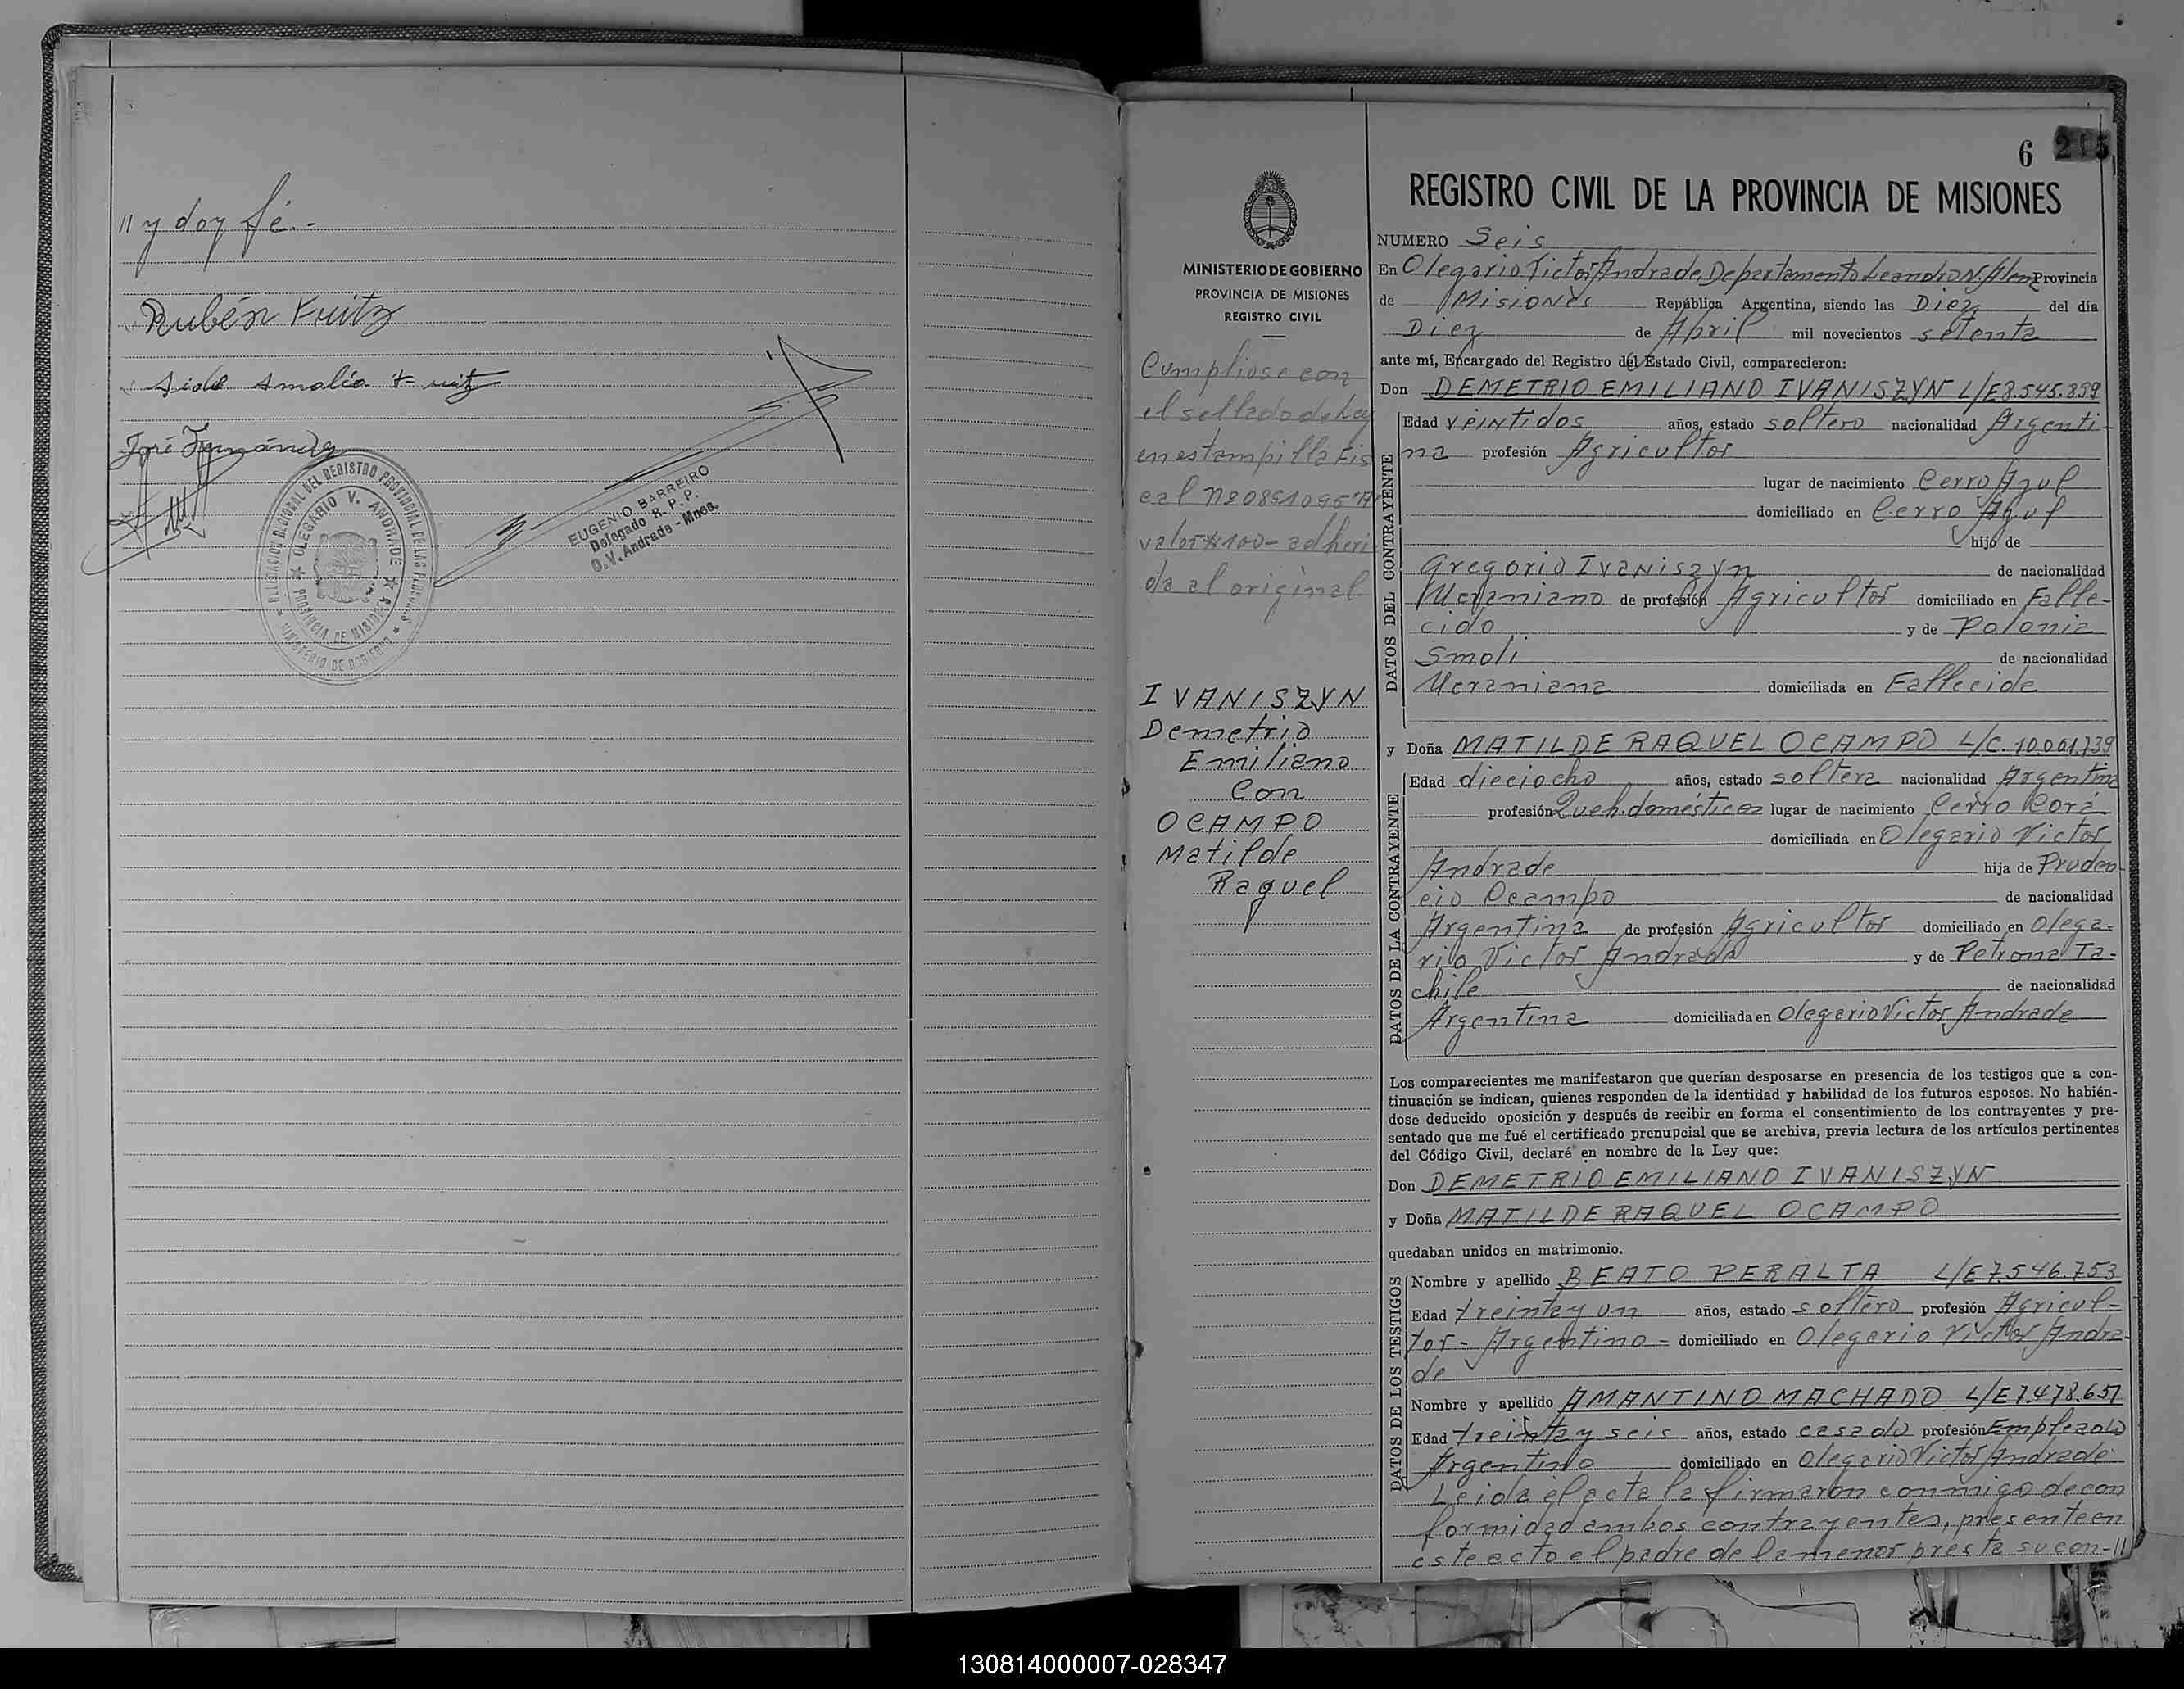 // y doy fé.-
Rubén Fritz
Amalia
José Fernández
DELEGACION REGIONAL DEL REGISTRO PROVINCIAL DE LAS PERSONAS
OLEGARIO V. ANDRADE
PROVINCIA DE MISIONES
MINISTERIO DE GOBIERNO
EUGENIO BARREIRO
Delegado R. P. P.
O. V. Andrade - Mnes.
MINISTERIO DE GOBIERNO
PROVINCIA DE MISIONES
REGISTRO CIVIL
Cumpliose con
el sellado de Ley
en estampilla Fis
cal Nº 0891095"A"
valor $ 100- adheri
da al original.
IVANISZYN
Demetrio
Emiliano
Con
OCAMPO
Matilde
Raquel
6 215
REGISTRO CIVIL DE LA PROVINCIA DE MISIONES
NUMERO Seis
En Olegario Victor Andrade, Departamento Leandro N. Alem Provincia
de Misiones República Argentina, siendo las Diez del día
Diez de Abril mil novecientos setenta
ante mí, Encargado del Registro del Estado Civil, comparecieron:
Don DEMETRIO EMILIANO IVANISZYN L/E 8.545.859
DATOS DEL CONTRAYENTE
Edad veintidos años, estado soltero nacionalidad Argenti-
na profesión Agricultor
lugar de nacimiento Cerro Azul
domiciliado en Cerro Azul
hijo de
Gregorio Ivaniszyn de nacionalidad
Ucraniano de profesión Agricultor domiciliado en Falle-
cido y de Polonia
Smoli de nacionalidad
Ucraniana domiciliada en Fallecida
y Doña MATILDE RAQUEL OCAMPO L/C. 10.001.739
DATOS DE LA CONTRAYENTE
Edad dieciocho años, estado soltera nacionalidad Argentina
profesión Queh. domésticos lugar de nacimiento Cerro Corá
domiciliada en Olegario Victor
Andrade hija de Pruden-
cio Ocampo de nacionalidad
Argentina de profesión Agricultor domiciliado en Olega-
rio Victor Andrade y de Petrona Ta-
chile de nacionalidad
Argentina domiciliada en Olegario Victor Andrade
Los comparecientes me manifestaron que querían desposarse en presencia de los testigos que a con-
tinuación se indican, quienes responden de la identidad y habilidad de los futuros esposos. No habién-
dose deducido oposición y después de recibir en forma el consentimiento de los contrayentes y pre-
sentado que me fué el certificado prenupcial que se archiva, previa lectura de los artículos pertinentes
del Código Civil, declaré en nombre de la Ley que:
Don DEMETRIO EMILIANO IVANISZYN
y Doña MATILDE RAQUEL OCAMPO
quedaban unidos en matrimonio.
DATOS DE LOS TESTIGOS
Nombre y apellido BEATO PERALTA L/E 7.546.753
Edad treinta y un años, estado soltero profesión Agricul-
tor - Argentino - domiciliado en Olegario Victor Andra-
de
Nombre y apellido AMANTINO MACHADO L/E 7.478.657
Edad treinta y seis años, estado casado profesión Empleado
Argentino domiciliado en Olegario Victor Andrade
Leida el acta la firmaron conmigo de con
formidad ambos contrayentes, presente en
este acto el padre de la menor presta su con-//
130814000007-028347